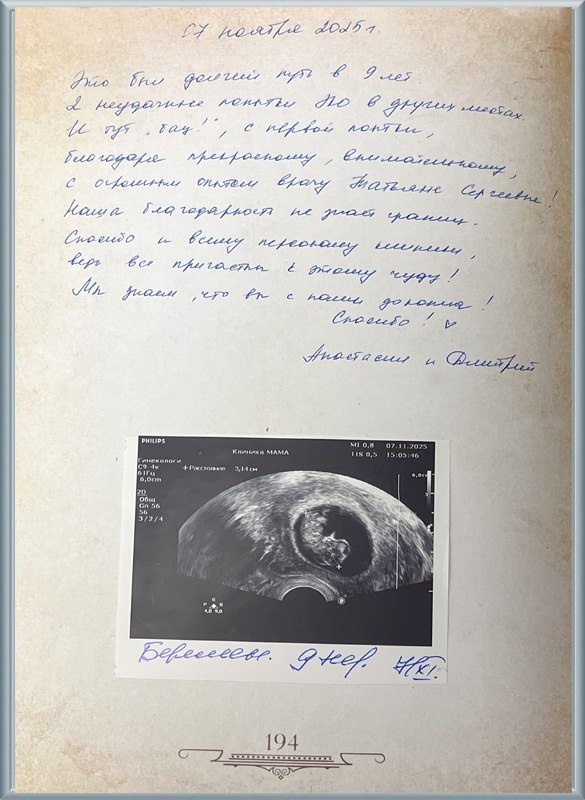 07 ноября 2025 г.
Это был долгий путь в 9 лет.
2 неудачные попытки ЭКО в других местах.
И тут „бац!", с первой попытки,
благодаря прекрасному, внимательному,
с огромным опытом врачу Татьяне Сергеевне!
Наша благодарность не знает границ.
Спасибо и всему персоналу клиники,
ведь все причастны к этому чуду!
Мы знаем, что вы с нами до конца!
Спасибо! ♡
Анастасия и Дмитрий
PHILIPS
MI 0,8 07.11.2025
Клиника МАМА
TIS 0,5 15:05:46
Гинекологи
C9-4v
61Гц
6,0cm
+ Расстояние 3,14 см
6,0см
2D
Общ
Gn 56
56
3/2/4
G
P R
4,0 9,0
P
Беременн. 9 нед. 7/XI.
194